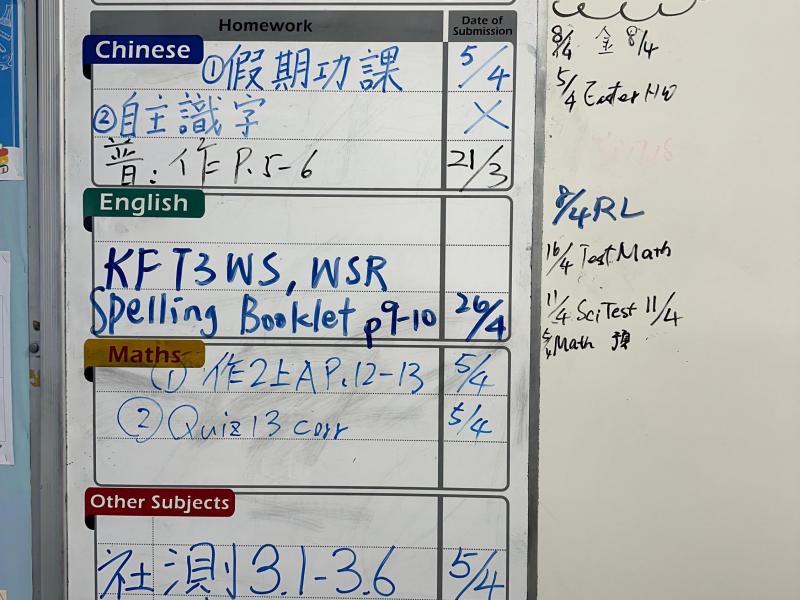 Homework
Date of Submission
Chinese
①假期功課 5/4
②自主識字 ×
普:作P.5-6 21/3
English
KF T3 WS, WSR
Spelling Booklet p9-10 26/4
Maths
① 作2上A P.12-13 5/4
② Quiz 13 corr 5/4
Other Subjects
社測3.1-3.6 5/4
8/4 金 8/4
5/4 Easter HW
8/4 RL
16/4 Test Math
11/4 Sci Test 11/4
Math 預